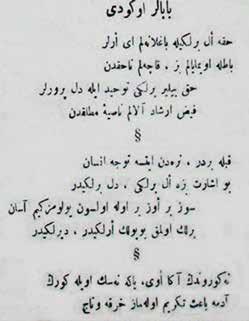 بابالر اوكودى
حقه أل برلكيله باغلانه‌لم اى ارلر
باطله اويمايالم بز ، قاچه‌لم ناحقدن
حق بيلير برلكى توحيد ايله دل پرورلر
فيض ارشاد آلالم ناصيهٔ مطلقدن
§
قبله بردر ، نره‌دن ايتسه توجه انسان
بو اشارت بزه أل برلكى ، دل برلكيدر
سوز بر أوز بر اوله اولسون يولومزكيم آسان
برلك اولمق بويولك أرلكيدر ، ديرلكيدر
§
نه‌كوروندڭ آكا أوى، باكه نه‌سڭ اويله كورڭ
آدمه باعث تكريم اوله‌ماز خرقه وتاج